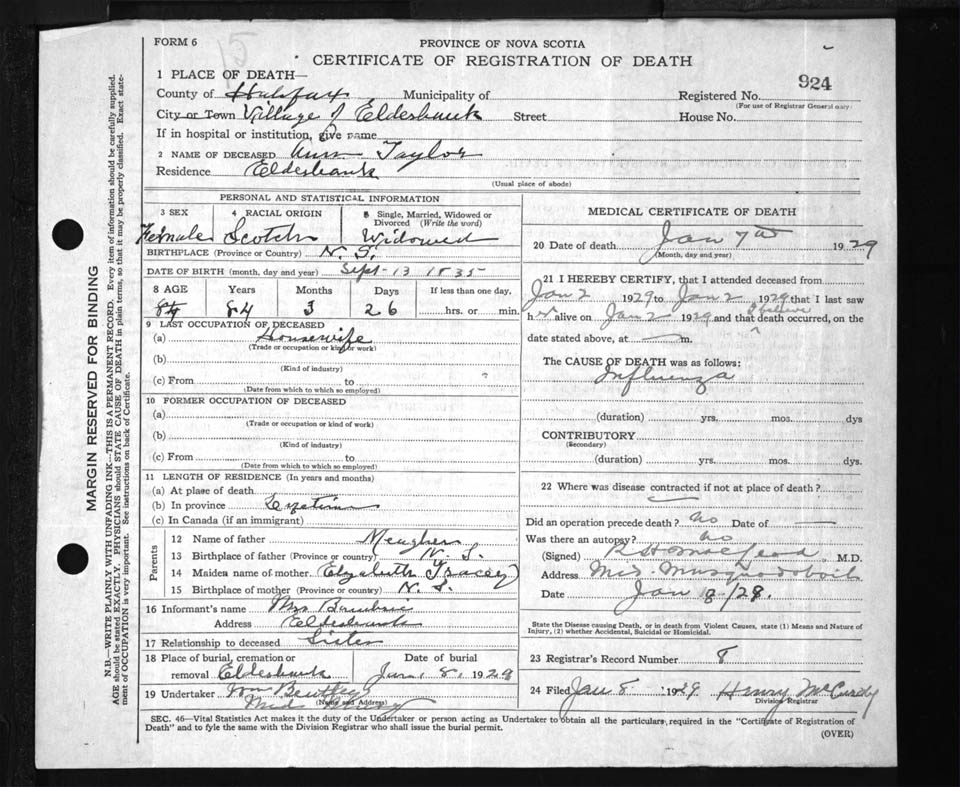 FORM 6
PROVINCE OF NOVA SCOTIA
CERTIFICATE OF REGISTRATION OF DEATH
924
1 PLACE OF DEATH—
County of Halifax Municipality of Registered No.
(For use of Registrar General only)
City or Town Village of Elderbank Street House No.
If in hospital or institution, give name
2 NAME OF DECEASED Ann Taylor
Residence Elderbank
(Usual place of abode)
PERSONAL AND STATISTICAL INFORMATION
3 SEX 4 RACIAL ORIGIN 5 Single, Married, Widowed or Divorced (Write the word)
Female Scotch Widowed
BIRTHPLACE (Province or Country) N. S.
DATE OF BIRTH (month, day and year) Sept - 13 1835
8 AGE Years Months Days If less than one day,
84 84 3 26 hrs. or min.
9 LAST OCCUPATION OF DECEASED
(a) Housewife
(Trade or occupation or kind of work)
(b)
(Kind of industry)
(c) From to
(Date from which to which so employed)
10 FORMER OCCUPATION OF DECEASED
(a)
(Trade or occupation or kind of work)
(b)
(Kind of industry)
(c) From to
(Date from which to which so employed)
11 LENGTH OF RESIDENCE (In years and months)
(a) At place of death
(b) In province
(c) In Canada (if an immigrant)
Parents
12 Name of father Meagher
13 Birthplace of father (Province or country) N. S.
14 Maiden name of mother Elyzabeth Tracey
15 Birthplace of mother (Province or country) N. S.
16 Informant's name Mrs
Address Elderbank
17 Relationship to deceased Sister
18 Place of burial, cremation or removal Elderbank Date of burial Jan. 8, 1929
19 Undertaker Wm Bentley
(Name and Address)
MEDICAL CERTIFICATE OF DEATH
20 Date of death Jan 7th 1929
(Month, day and year)
21 I HEREBY CERTIFY, that I attended deceased from
Jan 2 1929 to Jan 2 1929 that I last saw
her alive on Jan 2 1929 and that I believe death occurred, on the
date stated above, at — m.
The CAUSE OF DEATH was as follows:
Influenza
(duration) yrs. mos. dys
CONTRIBUTORY
(Secondary)
(duration) yrs. mos. dys.
22 Where was disease contracted if not at place of death?
Did an operation precede death? No Date of —
Was there an autopsy? No
(Signed) M.D.
Address Mid. Musquodoboit
Date Jan
State the Disease causing Death, or in death from Violent Causes, state (1) Means and Nature of Injury, (2) whether Accidental, Suicidal or Homicidal.
23 Registrar's Record Number 8
24 Filed Jan 8 1929 Henry McCurdy
Division Registrar
SEC. 46—Vital Statistics Act makes it the duty of the Undertaker or person acting as Undertaker to obtain all the particulars required in the "Certificate of Registration of
Death" and to fyle the same with the Division Registrar who shall issue the burial permit.
(OVER)
MARGIN RESERVED FOR BINDING
N.B.—WRITE PLAINLY WITH UNFADING INK—THIS IS A PERMANENT RECORD. Every item of information should be carefully supplied.
AGE should be stated EXACTLY. PHYSICIANS should STATE CAUSE OF DEATH in plain terms, so that it may be properly classified. Exact state-
ment of OCCUPATION is very important. See instructions on back of Certificate.